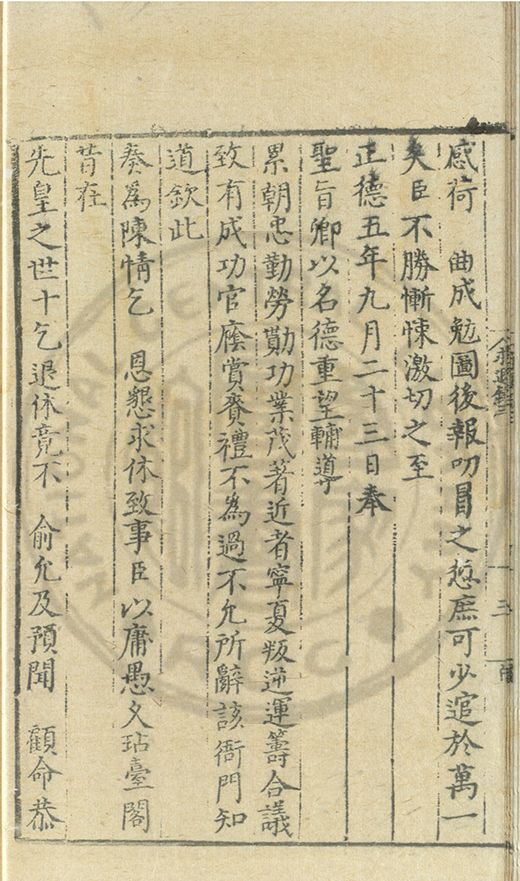 感荷　曲成勉圖後報叨冒之愆庶可少逭於萬一
矣臣不勝慚悚激切之至
正德五年九月二十三日奉
聖旨卿以名德重望輔導
累朝忠勤勞勩功業茂著近者寧夏叛逆運籌合議
致有成功官廕賞賚禮不為過不允所辭該衙門知
道欽此
奏為陳情乞　恩懇求休致事臣以庸愚久玷臺閣
昔在
先皇之世十乞退休竟不　俞允及預聞　顧命恭
三